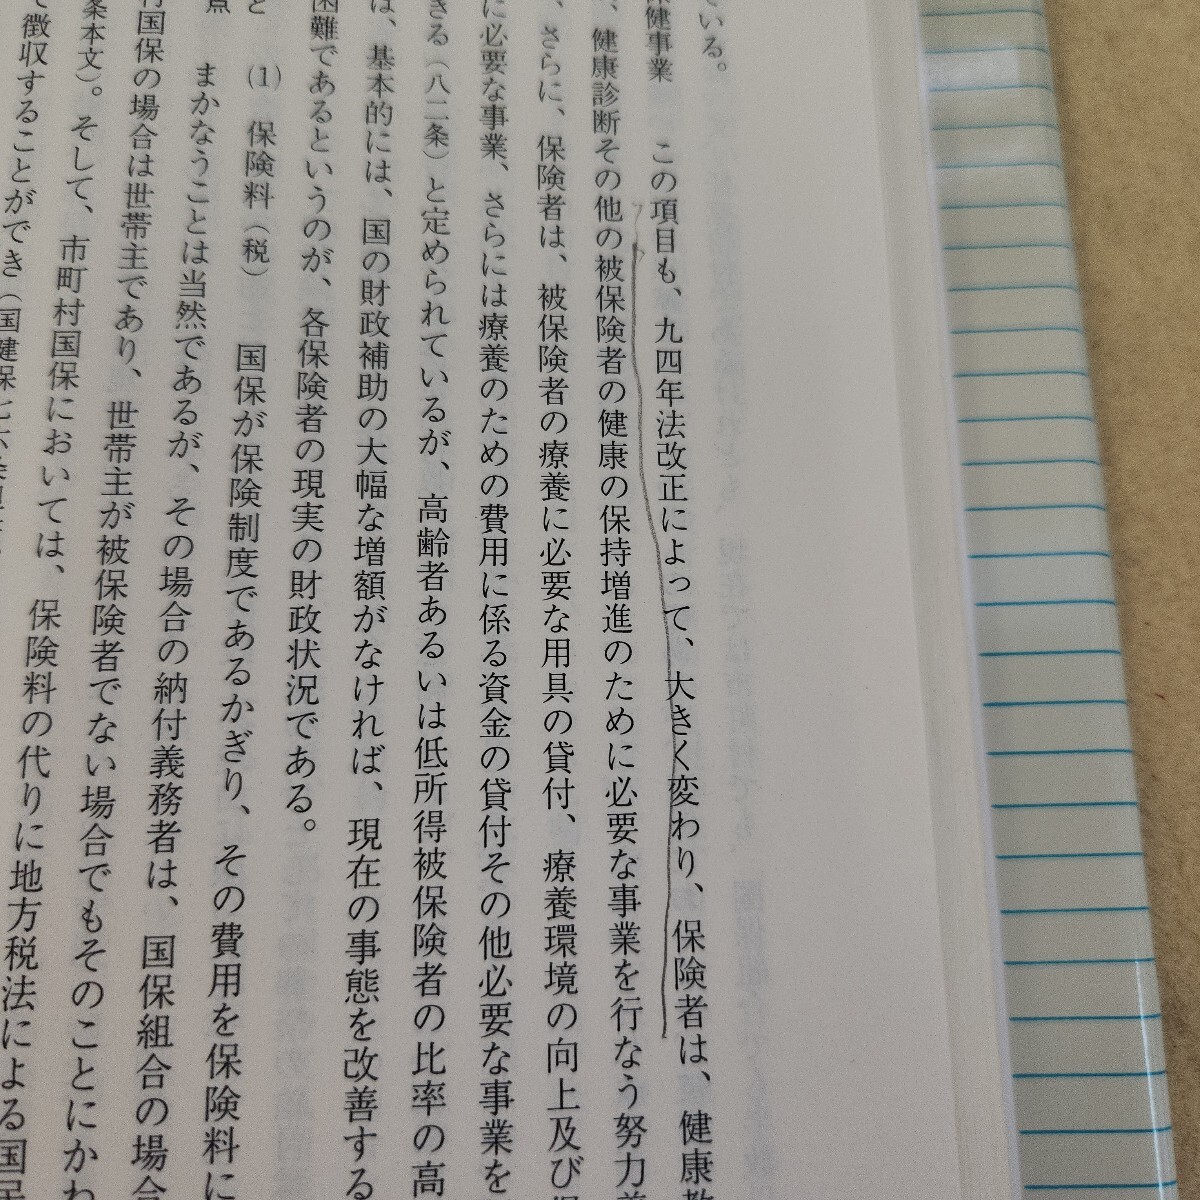 ている。
保健事業　この項目も、九四年法改正によって、大きく変わり、保険者は、健康教
、健康診断その他の被保険者の健康の保持増進のために必要な事業を行なう努力義
、さらに、保険者は、被保険者の療養に必要な用具の貸付、療養環境の向上及び保
に必要な事業、さらには療養のための費用に係る資金の貸付その他必要な事業を
きる（八二条）と定められているが、高齢者あるいは低所得被保険者の比率の高
は、基本的には、国の財政補助の大幅な増額がなければ、現在の事態を改善する
困難であるというのが、各保険者の現実の財政状況である。
と　(1)　保険料（税）　国保が保険制度であるかぎり、その費用を保険料に
点　まかなうことは当然であるが、その場合の納付義務者は、国保組合の場合
村国保の場合は世帯主であり、世帯主が被保険者でない場合でもそのことにかわ
条本文）。そして、市町村国保においては、保険料の代りに地方税法による国民
て徴収することができ（国健保七六条